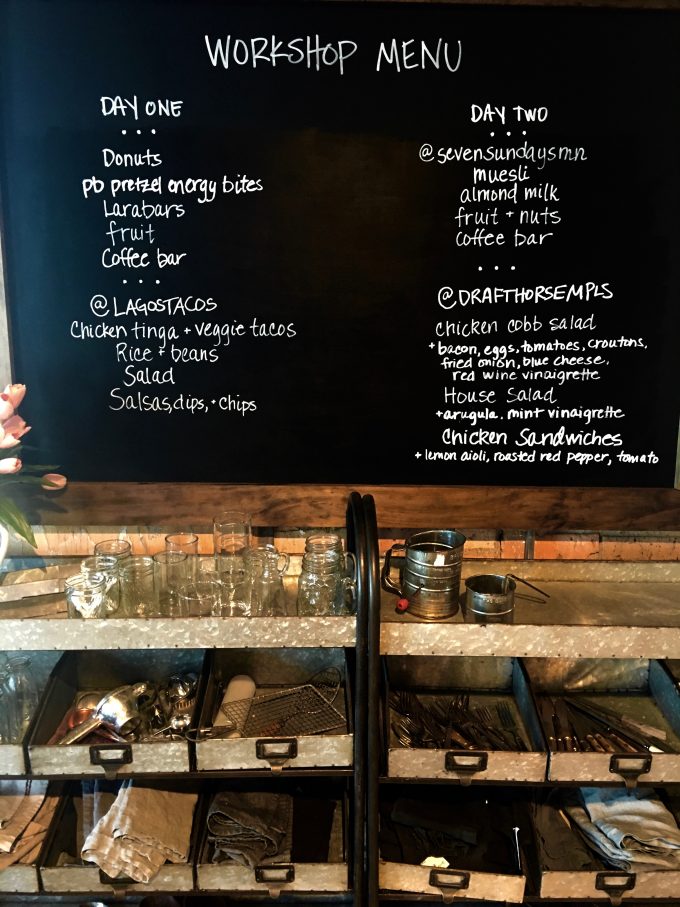 WORKSHOP MENU
DAY ONE
Donuts
pb pretzel energy bites
Larabars
fruit
Coffee bar
@LAGOSTACOS
Chicken tinga + veggie tacos
Rice + beans
Salad
Salsas, dips, + chips
DAY TWO
@sevensundaysmn
muesli
almond milk
fruit + nuts
coffee bar
@DRAFTHORSEMPLS
chicken cobb salad
+ bacon, eggs, tomatoes, croutons,
fried onion, blue cheese,
red wine vinaigrette
House Salad
+ arugula, mint vinaigrette
Chicken Sandwiches
+ lemon aioli, roasted red pepper, tomato